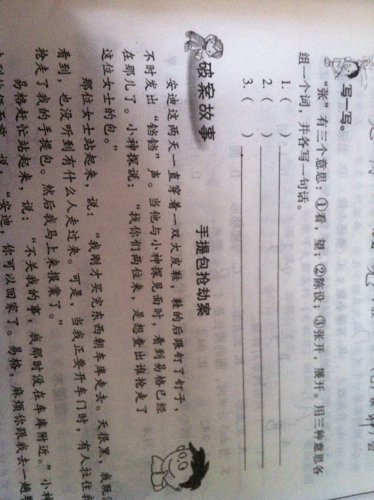 写一写。
“张”有三个意思：①看，望；②陈设；③张开，展开。用三种意思各
组一个词，并各写一句话。
1.（ ）
2.（ ）
3.（ ）
破案故事
手提包抢劫案
安迪这两天一直穿着一双大皮鞋，鞋的后跟钉了钉子，
不时发出“铛铛”声。当他与小神探见面时，看到易格已经
在那儿了。小神探说：“找你们两位来，是想查出谁抢走了
这位女士的包。”
那位女士站起来，说：“我刚才买完东西朝车库走去。天很黑，我既
看到，也没听到有什么人走过来。可是，当我正要开车门时，有人拉住我
抢走了我的手提包。然后我马上来报案了。”
易格赶忙站起来，说：“不关我的事，我那时没在车库附近。”小神
“安迪，你可以回家了。易格，麻烦你跟我去一趟